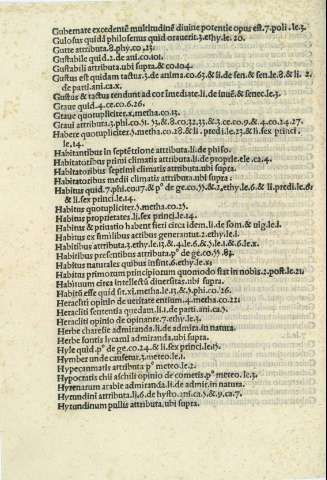 Gubernare excedentē multitudinē diuine potentie opus est.7.poli.le.3.
Gulosus quidā philosophus quid orauerit.3.ethy.le.20.
Gutte attributa.8.phy.co.23.
Gustabile quid.2.de ani.co.101.
Gustabili attributa.ubi supra.& co.104.
Gustus est quidam tactus.3.de anima.co.63.& li.de sen.& sen.le.8.& li. 2.
de parti.ani.ca.x.
Gustus & tactus tendunt ad cor īmediate.li.de iuuē.& senec.le.3.
Graue quid.4.ce.co.6.26.
Graue quotupliciter.x.metha.co.13.
Graui attributa.3.phi.co.51.53.& 8.co.32.33.& 2.ce.co.9.& 4.co.24.27.
Habere quotupliciter.5.metha.co.28.& li.predi.le.23.& li.sex princi.
le.14.
Habitantibus in septētrione attributa.li.de philo.
Habitatoribus primi climatis attributa.li.de propr.ele.ca.4.
Habitatoribus septimi climatis attributa.ubi supra.
Habitatoribus medii climatis attributa.ubi supra.
Habitus quid.7.phi.co.17.& pº de ge.co.55.& 2.ethy.le.6.& li.predi.le.
& li.sex princi.le.14.
Habitus quotupliciter.5.metha.co.25.
Habitus proprietates li.sex princi.le.14.
Habitus & priuatio habent fieri circa idem.li.de som.& uig.le.1.
Habitus ex similibus actibus generantur.2.ethy.le.1.
Habitibus attributa.3.ethy.le.13.& 4.le.6.& 5.le.1.& 6.le.x.
Habitibus presentibus attributa.pº de ge.co.55.83.
Habitus naturales quibus insint.6.ethy.le.xi.
Habitus primorum principiorum quomodo fiat in nobis.2.post.le.21.
Habituum circa intellectū diuersitas.ubi supra.
Habitū esse quid sit.xi.metha.le.13.& 5.phi.co.26.
Heracliti opinio de ueritate entium.4.metha.co.22.
Heracliti sententia quedam.li.1.de parti.ani.ca.5.
Heracliti opinio de opinante.7.ethy.le.3.
Herbe charestie admiranda.li.de admira.in natura.
Herbe fontis lycami admiranda.ubi supra.
Hyle quid.pº de ge.co.24.& li.sex princi.le.15.
Hymber unde causetur.3.meteo.le.1.
Hypecaumatis attributa pº meteo.le.2.
Hypocratis chii aschili opinio de cometis.pº meteo.le.3.
Hyrenarum arabie admiranda.li.de admir.in natura.
Hyrundini attributa.li.6.de hysto.ani.ca.5.& 9.ca.7.
Hyrundinum pullis attributa.ubi supra.